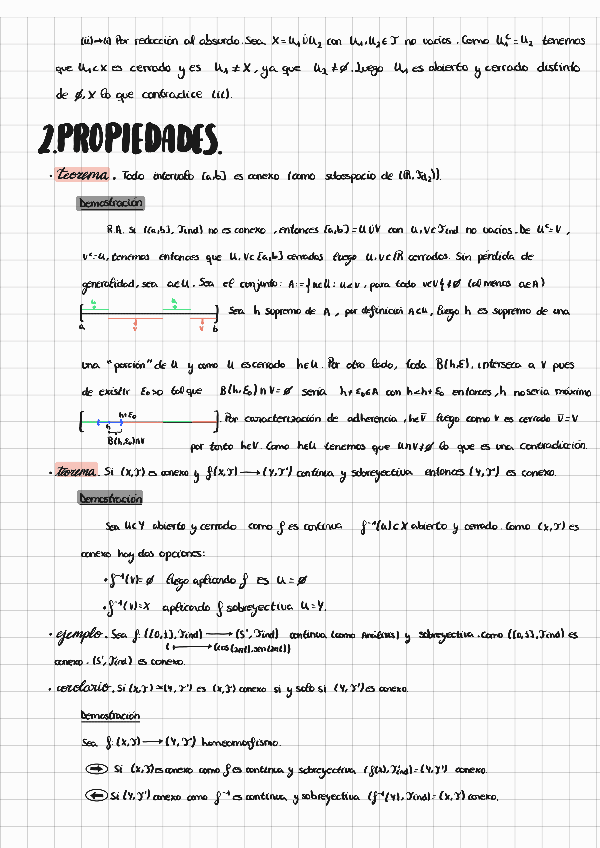 (ii)→(i) Por reducción al absurdo. Sea X=U₁∪̇U₂ con U₁,U₂∈T no vacíos. Como U₁ᶜ=U₂ tenemos
que U₁⊂X es cerrado y es U₁≠X, ya que U₂≠∅. Luego U₁ es abierto y cerrado distinto
de ∅,X lo que contradice (ii).
2.PROPIEDADES.
· teorema. Todo intervalo [a,b] es conexo (como subespacio de (ℝ,T
Demostración
R.A. Si ([a,b],Tind) no es conexo, entonces [a,b]=U∪̇V con U,V∈Tind no vacíos. De Uᶜ=V,
Vᶜ=U, tenemos entonces que U,V⊂[a,b] cerrados luego U,V⊂ℝ cerrados. Sin pérdida de
generalidad, sea a∈U. Sea el conjunto: A:={u∈U: u<v, para todo v∈V}≠∅ (al menos a∈A)
U U
[ ] Sea h supremo de A, por definición A⊂U, luego h es supremo de una
a V V b
una "porción" de U y como U es cerrado h∈U. Por otro lado, toda B(h,ε), interseca a V pues
de existir ε₀>0 tal que B(h,ε₀)∩V=∅ sería h+ε₀∈A con h<h+ε₀ entonces, h no sería máximo
h+ε₀
[ ] Por caracterización de adherencia, h∈V̄ luego como V es cerrado V̄=V
h
B(h,ε₀)∩V
por tanto h∈V. Como h∈U tenemos que U∩V≠∅ lo que es una contradicción.
· teorema. Si (X,T) es conexo y f:(X,T)→(Y,T') continua y sobreyectiva entonces (Y,T') es conexo.
Demostración
Sea U⊂Y abierto y cerrado como f es continua f⁻¹(U)⊂X abierto y cerrado. Como (X,T) es
conexo hay dos opciones:
· f⁻¹(U)=∅ luego aplicando f es U=∅
· f⁻¹(U)=X aplicando f sobreyectiva U=Y.
· ejemplo. Sea f:([0,1],Tind)→(S¹,Tind) continua (como Análisis) y sobreyectiva. Como ([0,1],Tind) es
t⟼(cos(2πt),sen(2πt))
conexo. (S¹,Tind) es conexo.
· corolario. Si (X,T)≃(Y,T') es (X,T) conexo si y solo si (Y,T') es conexo.
Demostración
Sea f:(X,T)→(Y,T') homeomorfismo.
⇒ Si (X,T) es conexo como f es continua y sobreyectiva (f(X),T'ind)=(Y,T') conexo.
⇐ Si (Y,T') conexo como f⁻¹ es continua y sobreyectiva (f⁻¹(Y),Tind)=(X,T) conexo.